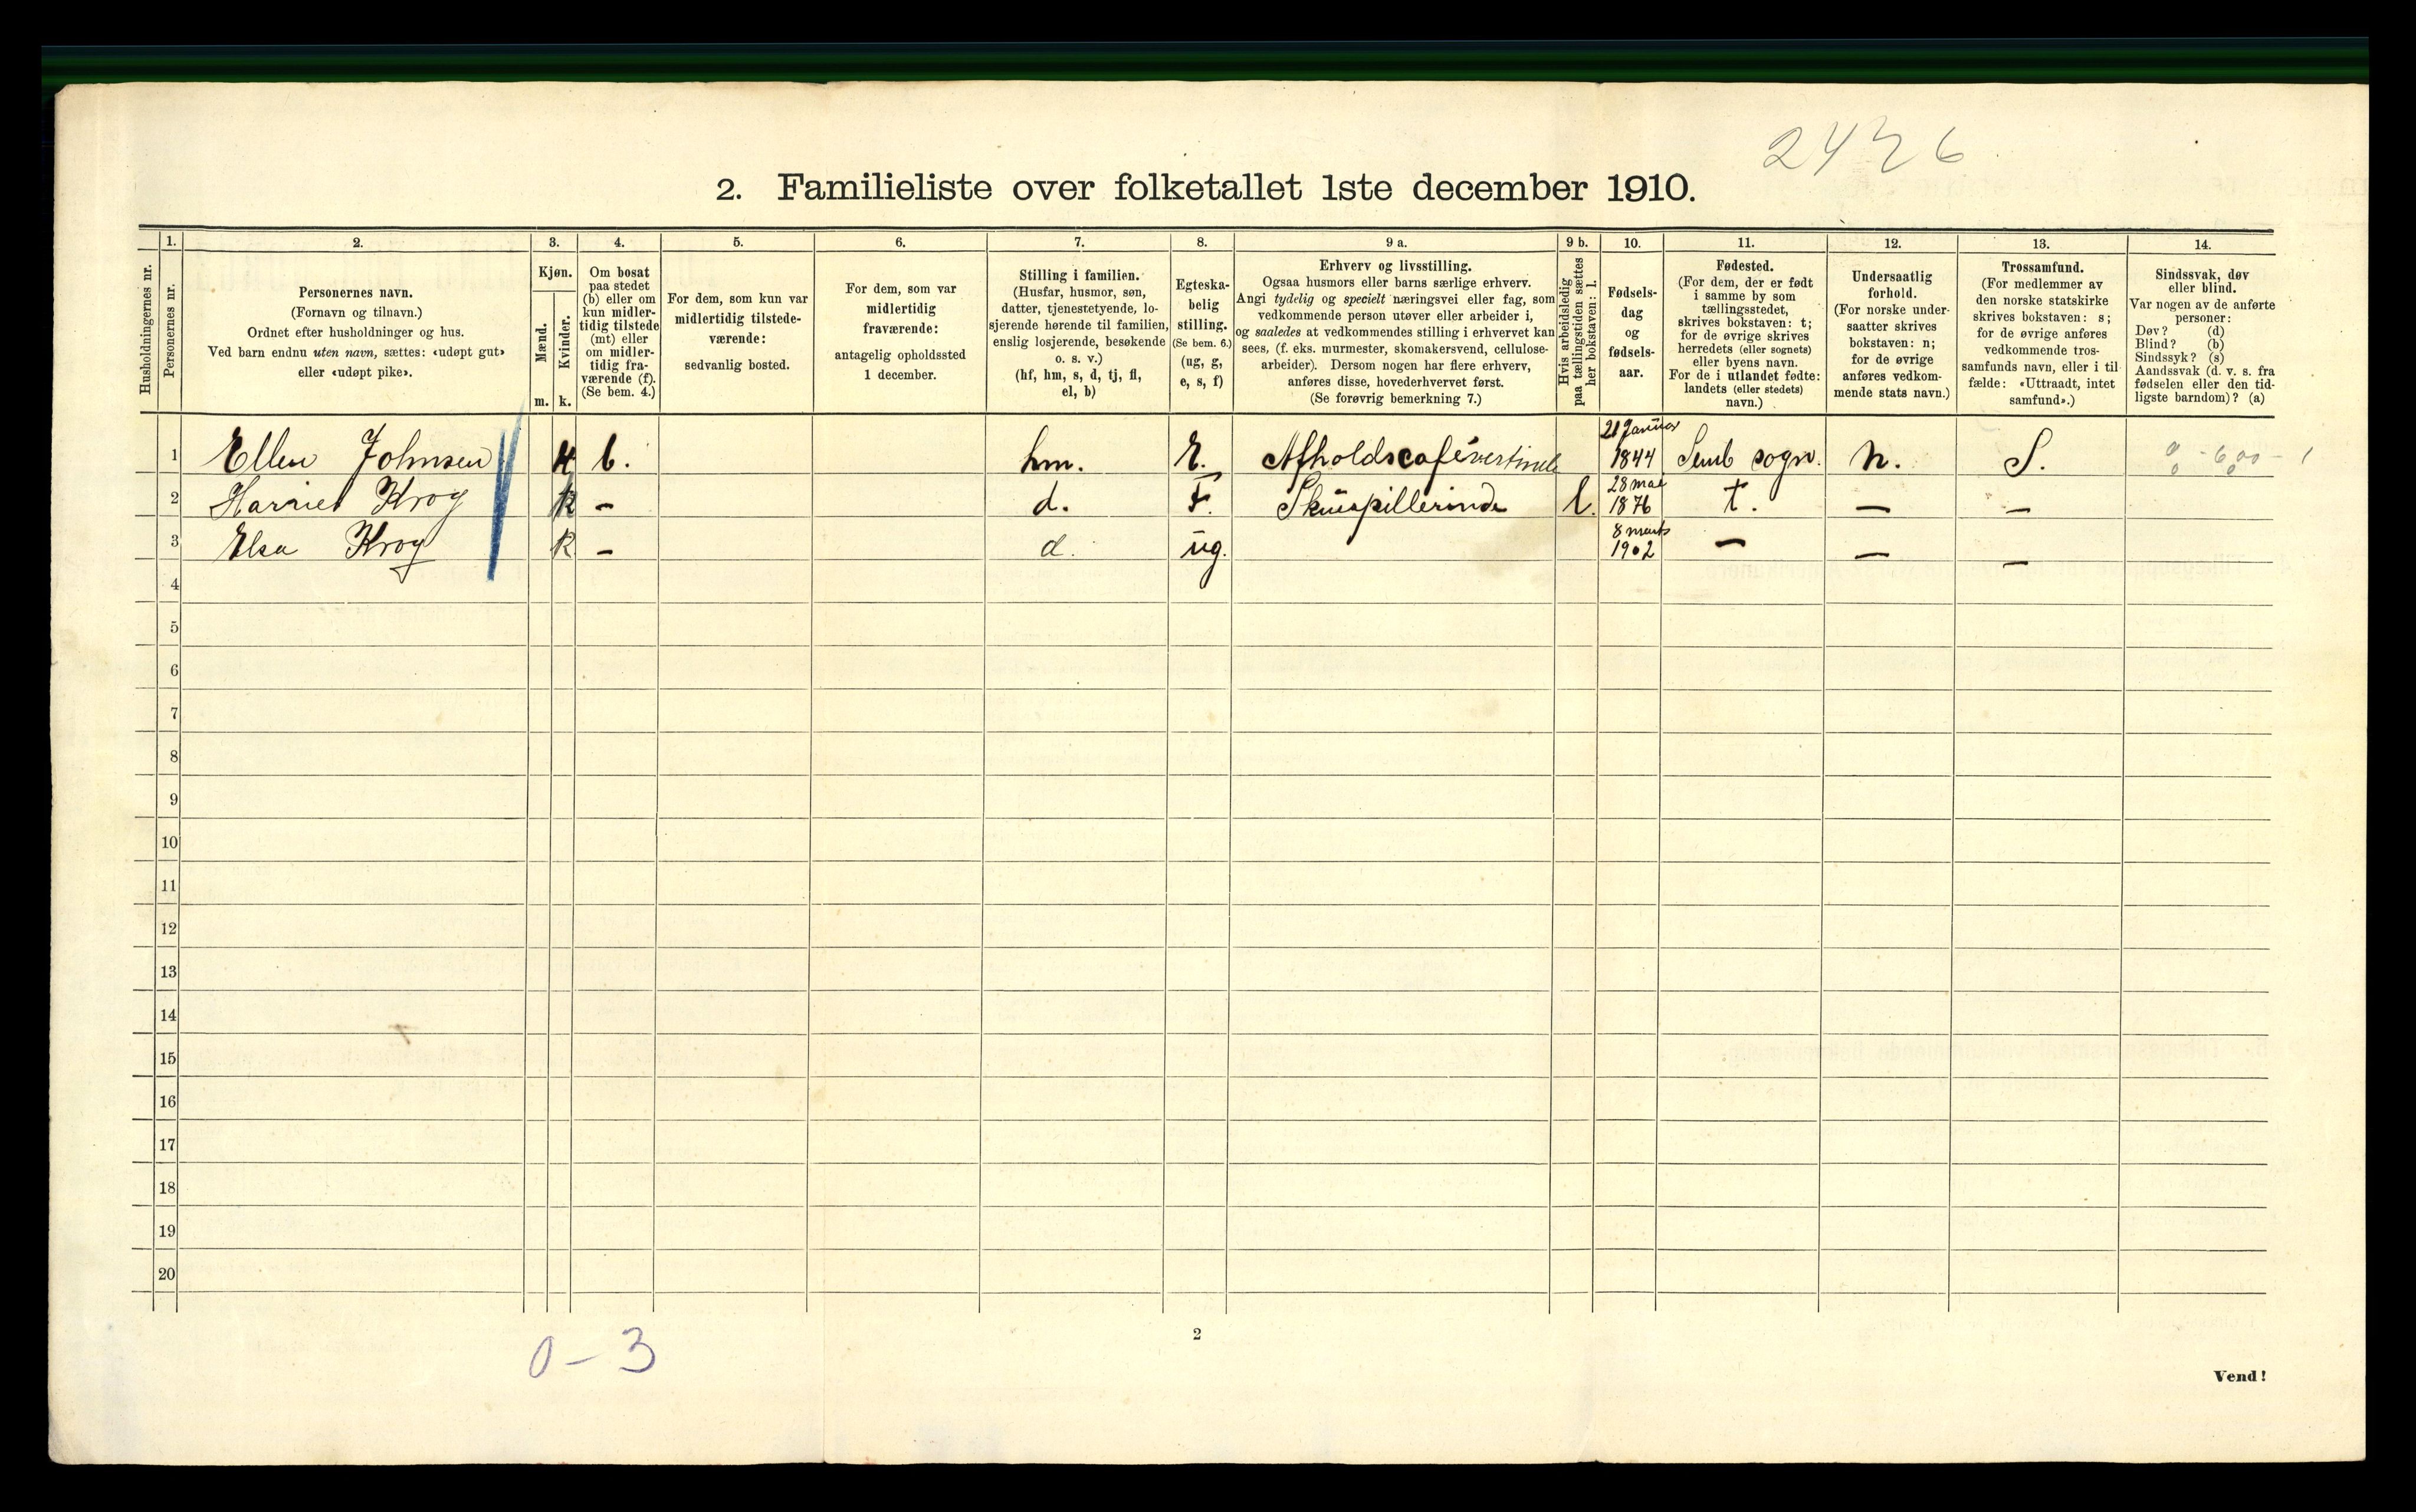 2426
2. Familieliste over folketallet 1ste december 1910.
Husholdningernes nr.
1.
Personernes nr.
2.
Personernes navn.
(Fornavn og tilnavn.)
Ordnet efter husholdninger og hus.
Ved barn endnu uten navn, sættes: «udøpt gut»
eller «udøpt pike».
3.
Kjøn.
Mænd.
Kvinder.
m. k.
4.
Om bosat
paa stedet
(b) eller om
kun midler-
tidig tilstede
(mt) eller
om midler-
tidig fra-
værende (f).
(Se bem. 4.)
5.
For dem, som kun var
midlertidig tilstede-
værende:
sedvanlig bosted.
6.
For dem, som var
midlertidig
fraværende:
antagelig opholdssted
1 december.
7.
Stilling i familien.
(Husfar, husmor, søn,
datter, tjenestetyende, lo-
sjerende hørende til familien,
enslig losjerende, besøkende
o. s. v.)
(hf, hm, s, d, tj, fl,
el, b)
8.
Egteska-
belig
stilling.
(Se bem. 6.)
(ug, g,
e, s, f)
9 a.
Erhverv og livsstilling.
Ogsaa husmors eller barns særlige erhverv.
Angi tydelig og specielt næringsvei eller fag, som
vedkommende person utøver eller arbeider i,
og saaledes at vedkommendes stilling i erhvervet kan
sees, (f. eks. murmester, skomakersvend, cellulose-
arbeider). Dersom nogen har flere erhverv,
anføres disse, hovederhvervet først.
(Se forøvrig bemerkning 7.)
9 b.
Hvis arbeidsledig
paa tællingstiden sættes
her bokstaven: l.
10.
Fødsels-
dag
og
fødsels-
aar.
11.
Fødested.
(For dem, der er født
i samme by som
tællingsstedet,
skrives bokstaven: t;
for de øvrige skrives
herredets (eller sognets)
eller byens navn.
For de i utlandet fødte:
landets (eller stedets)
navn.)
12.
Undersaatlig
forhold.
(For norske under-
saatter skrives
bokstaven: n;
for de øvrige
anføres vedkom-
mende stats navn.)
13.
Trossamfund.
(For medlemmer av
den norske statskirke
skrives bokstaven: s;
for de øvrige anføres
vedkommende tros-
samfunds navn, eller i til-
fælde: «Uttraadt, intet
samfund».)
14.
Sindssvak, døv
eller blind.
Var nogen av de anførte
personer:
Døv? (d)
Blind? (b)
Sindssyk? (s)
Aandssvak (d. v. s. fra
fødselen eller den tid-
ligste barndom)? (a)
1 Ellen Johnsen K b. hm. E. Afholdscafévertinde 21 Januar 1844 Semb sogn. n. S.
2 Harriet Krog K – d. F. Skuespillerinde l. 28 mai 1876 t. – –
3 Elsa Krog K – d. ug. 8 marts 1902 – – –
4
5
6
7
8
9
10
11
12
13
14
15
16
17
18
19
20
0 – 3
2
Vend!